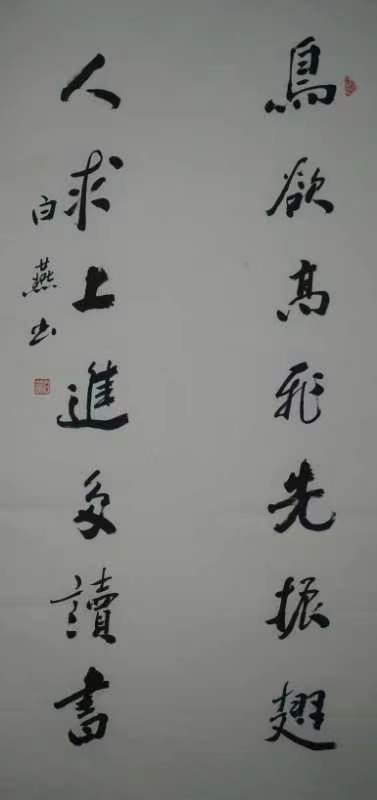 鳥欲高飛先振翅
人求上進多讀書
白燕书